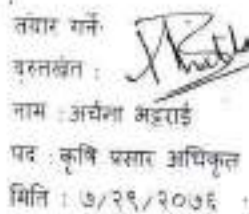 तयार गर्नेः
दस्तखत :
नाम : अर्चना भट्टराई
पद : कृषि प्रसार अधिकृत
मिति : ७/२९/२०७६